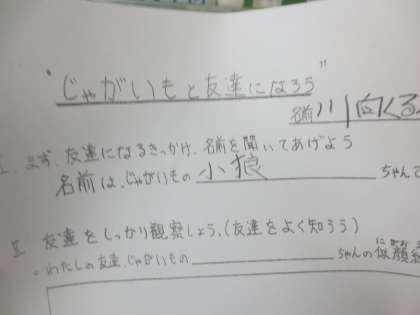 "じゃがいもと友達になろう"
名前 川向くる
I. まず、友達になるきっかけ、名前を聞いてあげよう
名前は、じゃがいもの 小狼 ちゃんで
II 友達をしっかり観察しよう、(友達をよく知ろう)
。わたしの友達、じゃがいもの ちゃんの似顔絵